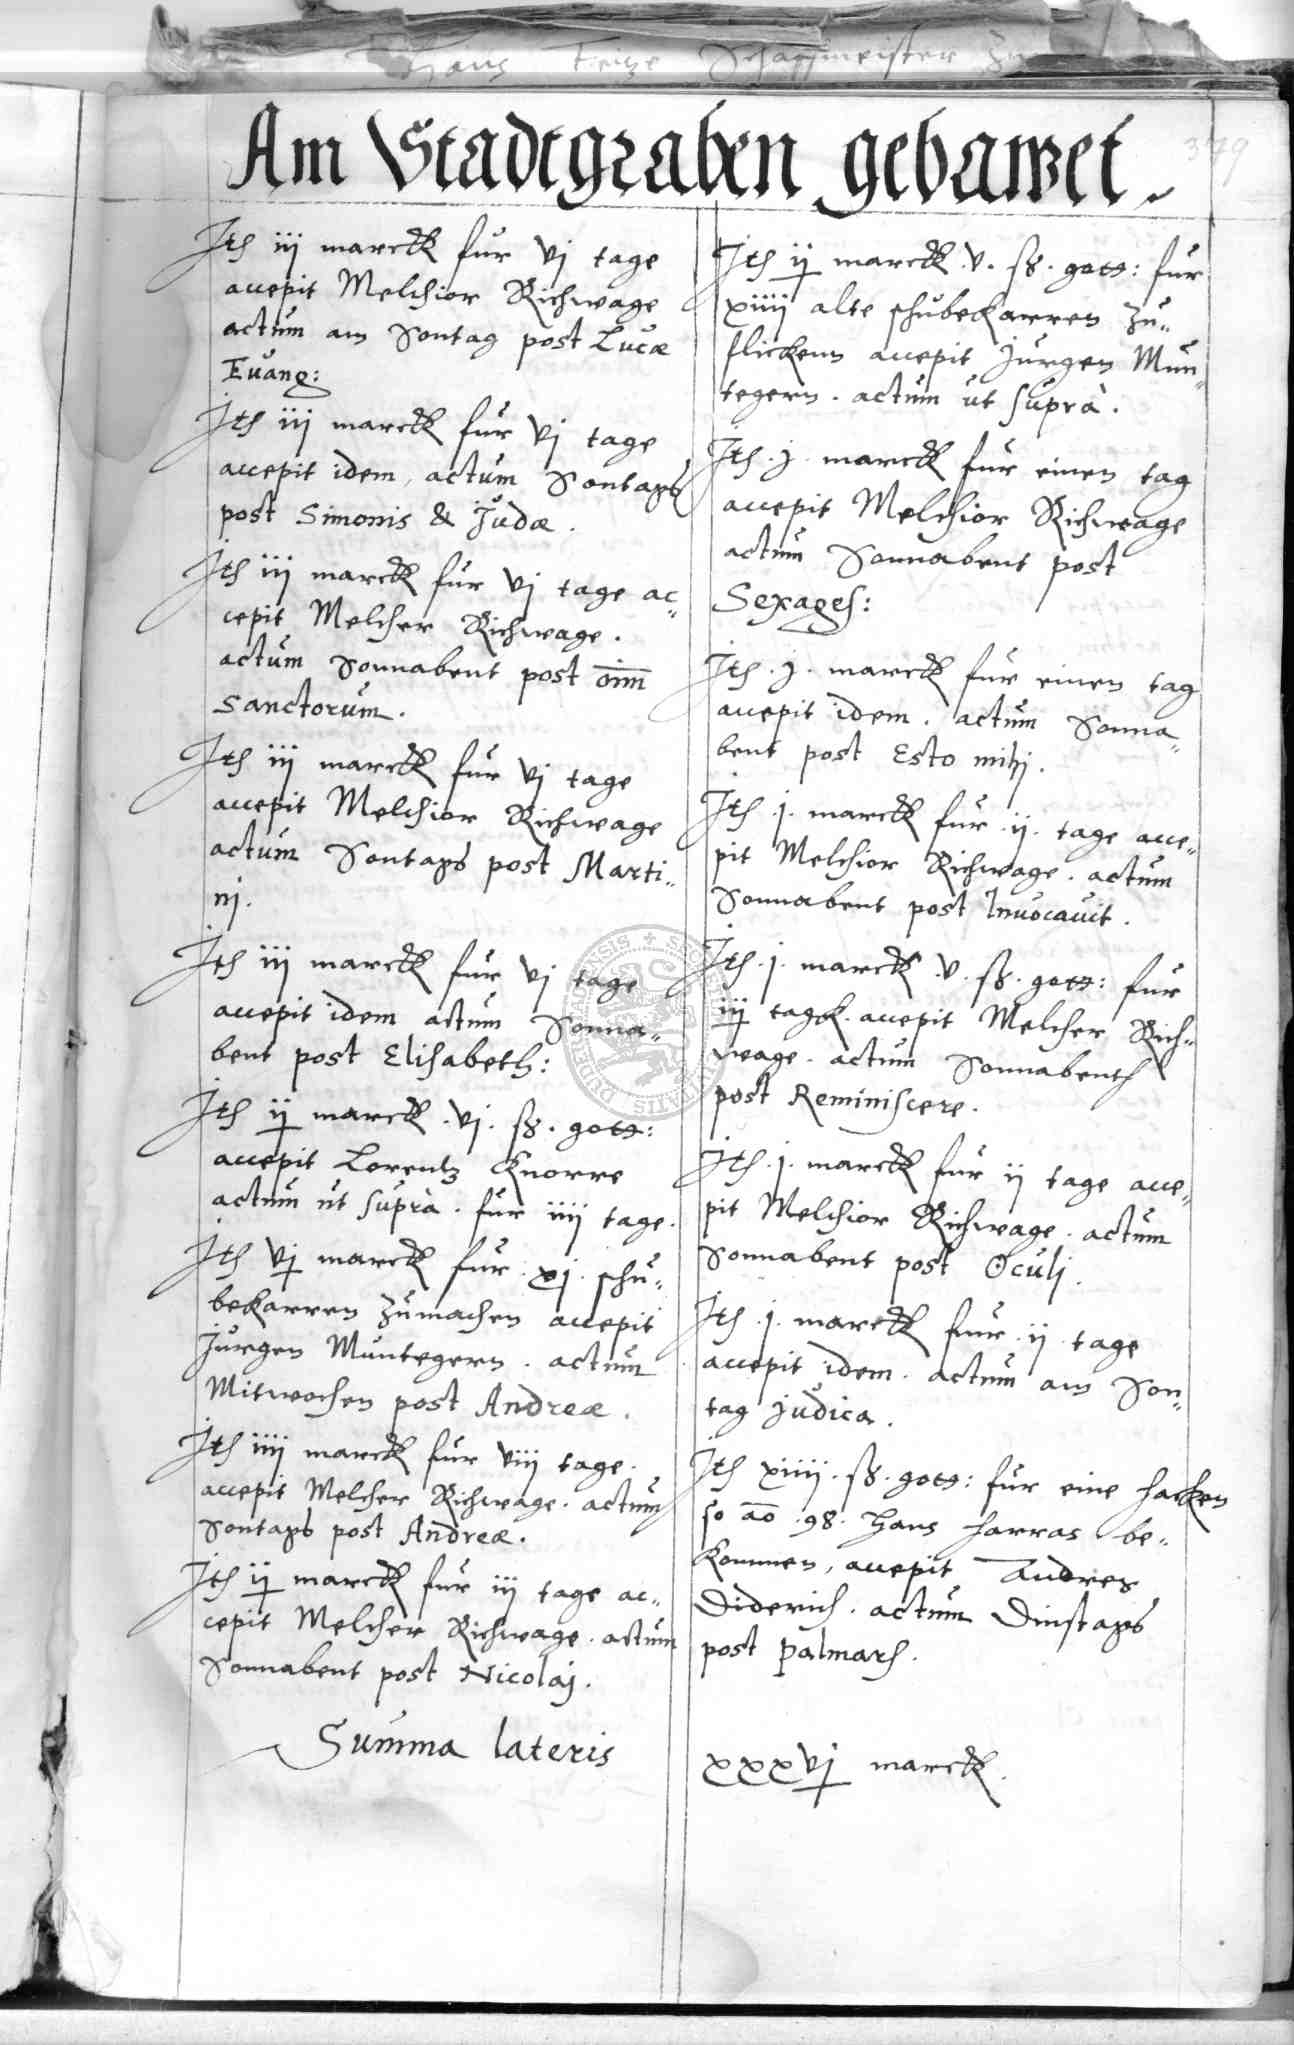 Hans Feige Schaffmeister zu
379
Am Stadtgraben gebawet.
Ith iij marck fur vj tage
accepit Melchior Richwage
actum am Sontag post Lucæ
Euang:
Ith iij marck fur vj tage
accepit idem, actum Sontags
post Simonis & Judæ.
Ith iij marck fur vj tage ac„
cepit Melcher Richwage.
actum Sonnabent post oim
Sanctorum.
Ith iij marck fur vj tage
accepit Melchior Richwage
actum Sontags post Marti„
nj.
Ith iij marck fur vj tage
accepit idem actum Sonna„
bent post Elisabeth:
Ith ij marck .vj. sß. gott:
accepit Lorentz Knorre
actum ut suprà. fur iiij tage.
Ith vj marck fur .xj. schu„
bekarren zumachen accepit
Jurgen Muntegern. actum
Mitwochen post Andreæ.
Ith iiij marck fur viij tage.
accepit Melcher Richwage. actum
Sontags post Andreæ.
Ith ij marck fur iij tage ac„
cepit Melcher Richwage. actum
Sonnabent post Nicolaj.
Summa lateris
Ith ij marck .v. sß. gott: fur
xiiij alte schubekarren zu„
flickenn accepit Jurgen Mun„
tegern. actum ut suprà.
Ith .j. marck fur einen tag
accepit Melchior Richwage
actum Sonnabent post
Sexages:
Ith .j. marck fur einen tag
accepit idem. actum Sonna„
bent post Esto mihj.
Ith .j. marck fur .ij. tage acce„
pit Melchior Richwage. actum
Sonnabent post Inuocauit.
Ith .j. marck .v. sß. gott: fur
iij tagk. accepit Melcher Rich„
wage. actum Sonnabenth
post Reminiscere.
Ith .j. marck fur ij tage acce„
pit Melchior Richwage. actum
Sonnabent post Oculj.
Ith .j. marck fur .ij tage
accepit idem. actum am Son„
tag Judica.
Ith xiiij. sß. gott: fur eine hacken
so ao .98. Hans Harras be„
kommen, accepit Andres
Diderich. actum Dinstags
post palmarh.
xxxvj marck.